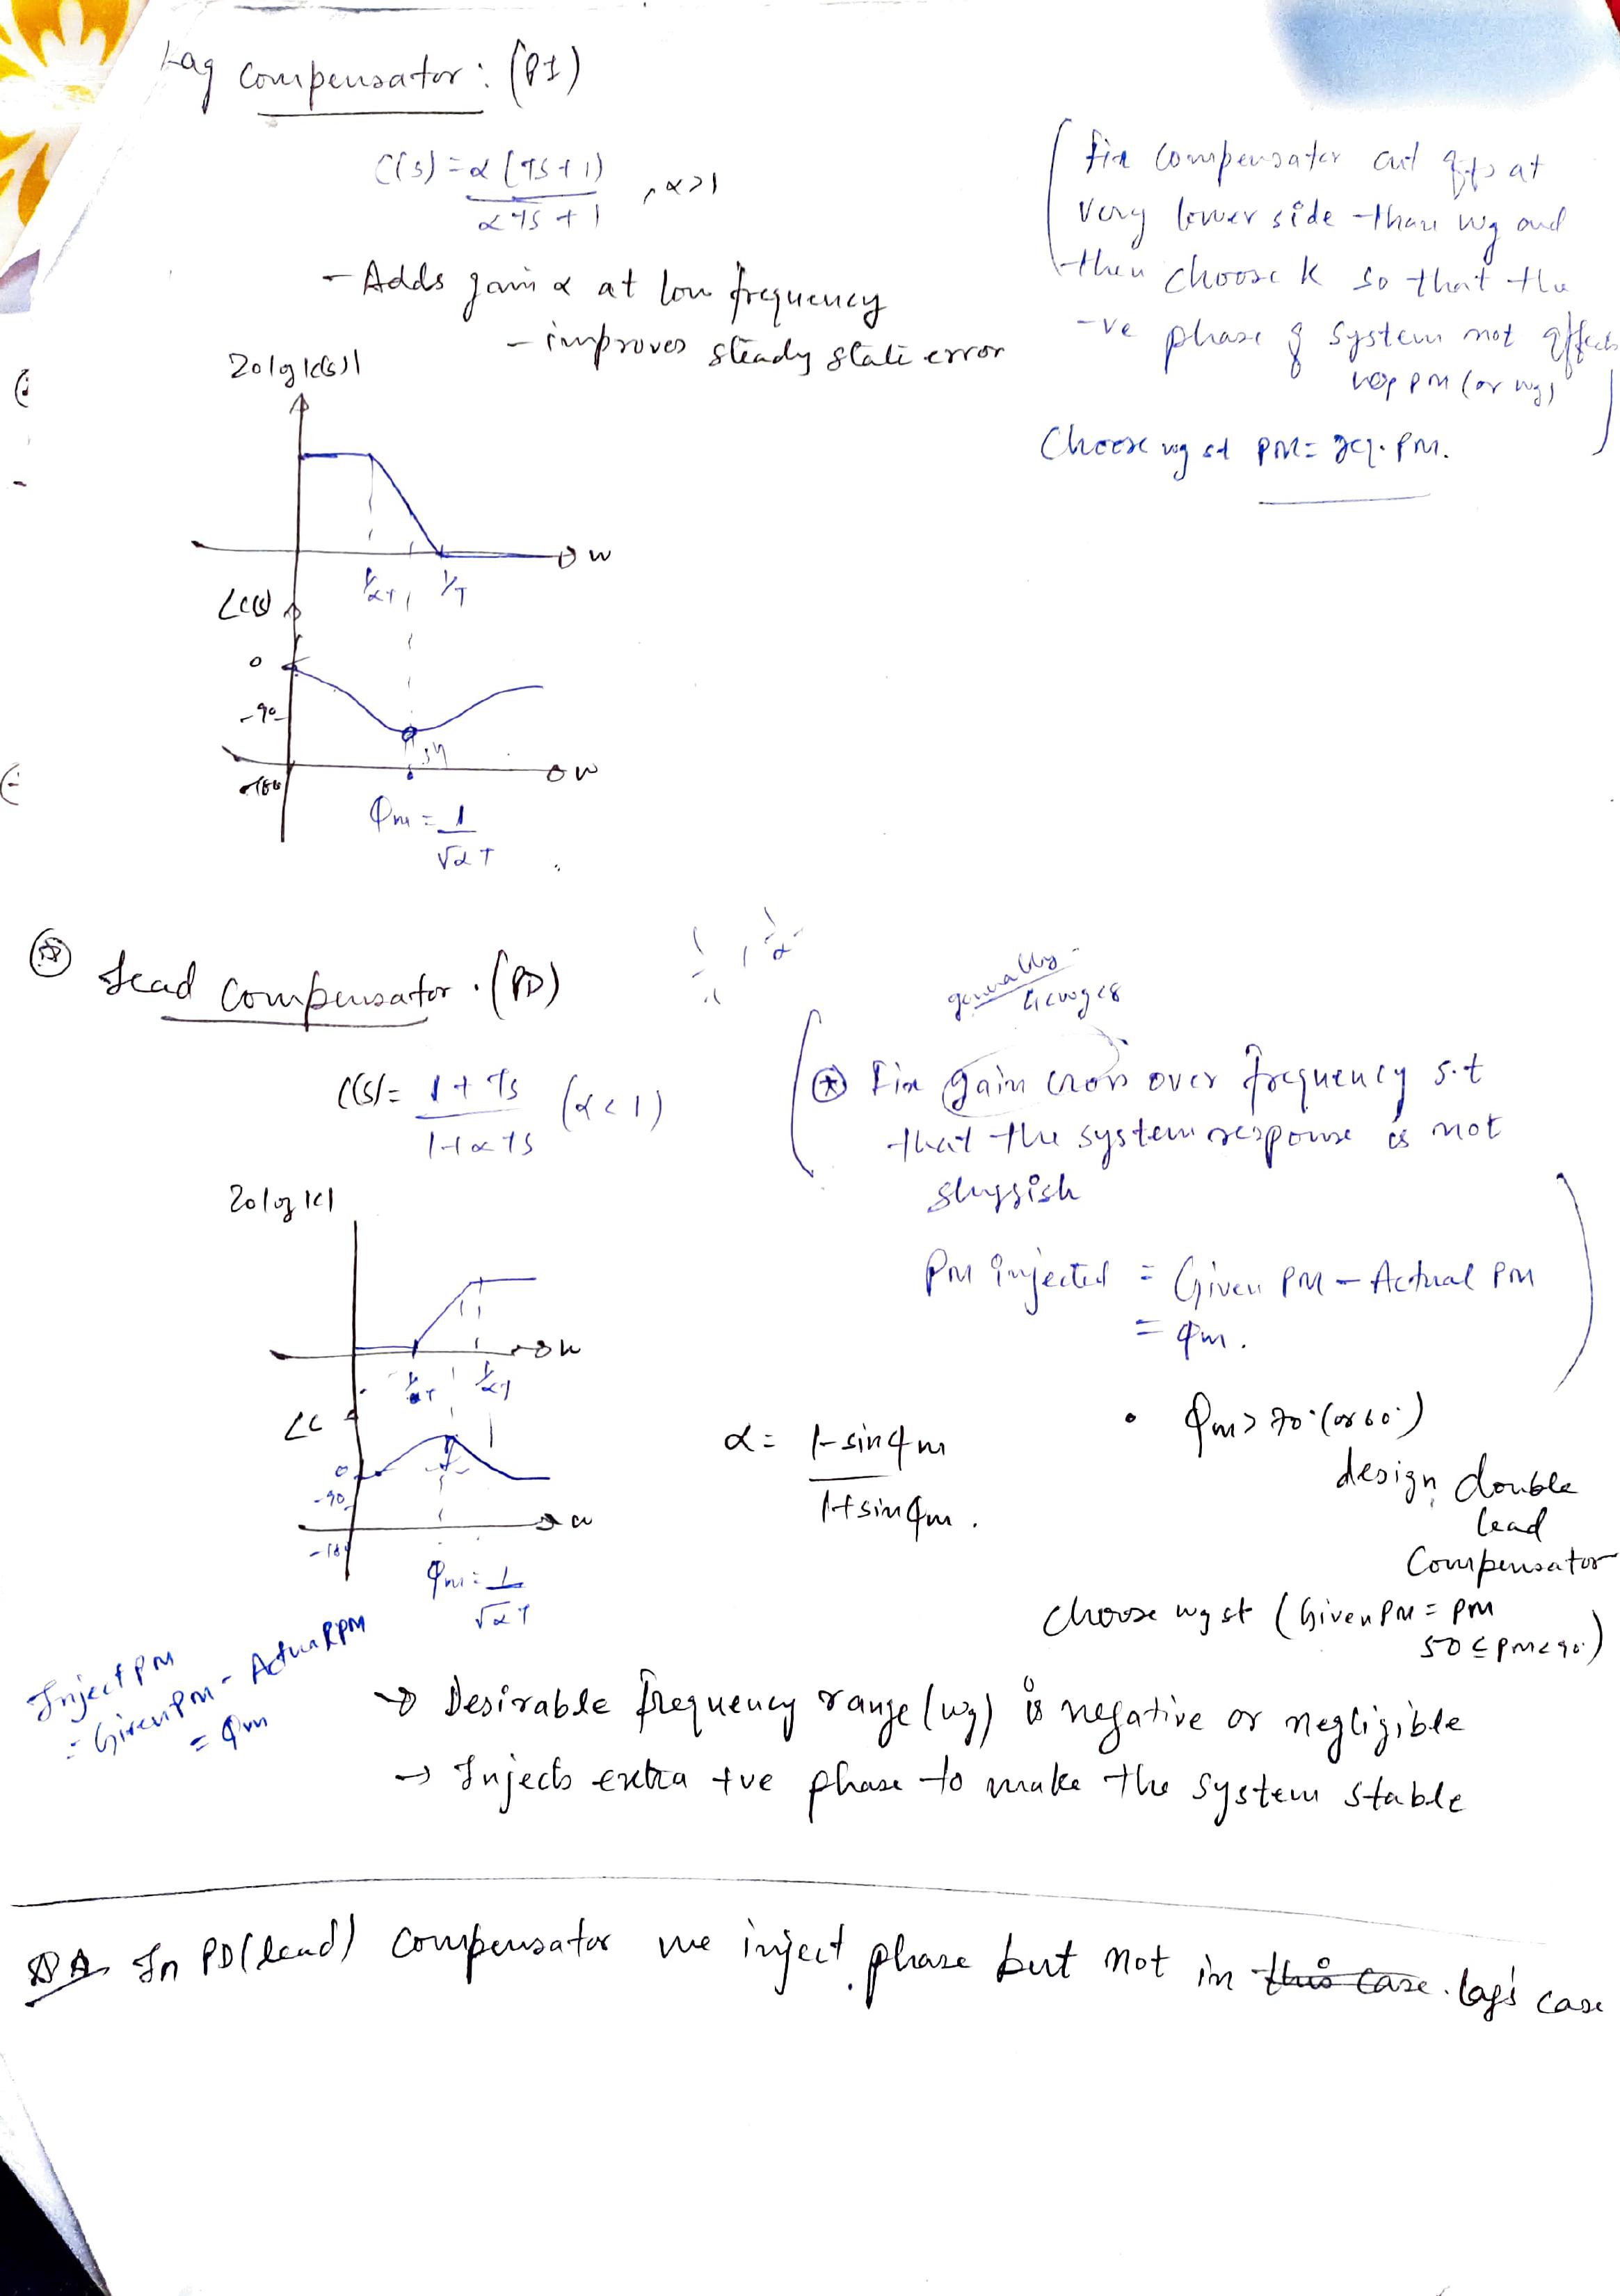 Lag compensator: (PI)
C(s) = α (Ts + 1) / αTs + 1 , α>1
- Adds gain α at low frequency
- improves steady state error
(Fix compensator cut at
very lower side than wg and
then choose K so that the
-ve phase of system not affects
PM (or wg))
Choose wg st PM = req. PM.
20log|C(s)|
w
1/αT 1/T
∠C(s)
0
-90
-180
w
Φm = 1/√αT
Lead compensator. (PD)
C(s) = 1 + Ts / 1 + αTs (α<1)
generally
4<wg<8
Fix gain cross over frequency s.t
that the system response is not
sluggish
PM injected = Given PM - Actual PM
= φm.
20log|C|
w
1/αT
∠C
0
-90
-180
w
Φm = 1/√αT
α = 1-sinφm / 1+sinφm .
• Φm > 70° (or 60°)
design double
lead
Compensator
Choose wg st (Given PM = PM
50 ≤ PM < 90°)
Inject PM
= Given PM - Actual PM
= Φm
→ Desirable frequency range (wg) is negative or negligible
→ Injects extra +ve phase to make the system stable
In PD(lead) compensator we inject phase but not in this case. lag's case